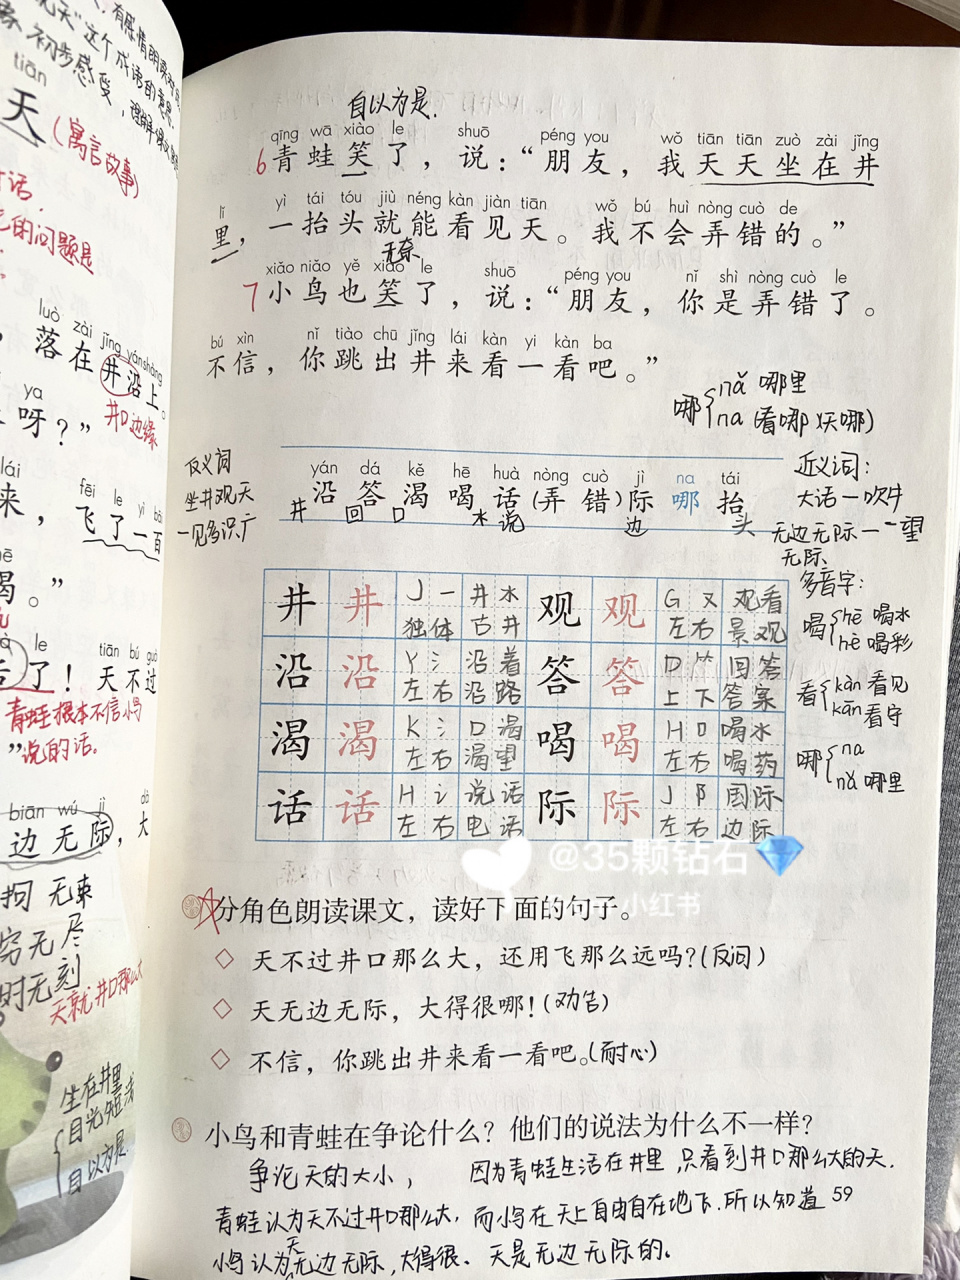 有感情朗读对
无天”这个成语的意思.
初步感受，理解课文
tiān
天
(寓言故事)
话.
的问题是
luò zài jǐng yán shàng
，落在井沿上。
井口边缘
ya
呀？”
lái fēi le yì bǎi
来，飞了一百
渴。”
le tiān bú guò
了！天不过
青蛙根本不信小鸟
”说的话。
biān wú jì dà
边无际，大
拘无束
穷无尽
时无刻
天就井口那么大
坐在井里
目光短浅
自以为是
自以为是.
qīng wā xiào le shuō péng you wǒ tiān tiān zuò zài jǐng
6 青蛙笑了，说：“朋友，我天天坐在井
lǐ yì tái tóu jiù néng kàn jiàn tiān wǒ bú huì nòng cuò de
里，一抬头就能看见天。我不会弄错的。”
无奈
xiǎo niǎo yě xiào le shuō péng you nǐ shì nòng cuò le
7 小鸟也笑了，说：“朋友，你是弄错了。
bú xìn nǐ tiào chū jǐng lái kàn yi kàn ba
不信，你跳出井来看一看吧。”
哪 nǎ 哪里
na (看哪 天哪)
反义词
坐井观天
一见多识广
yán dá kě hē huà nòng cuò jì na tái
沿 答 渴 喝 话 (弄 错) 际 哪 抬
井 回 口 水 说 边 头
近义词：
大话一吹牛
无边无际一一望
无际
井 井 J 一 井水 观 观 G 又 观看
独体 古井 左右 景观
沿 沿 Y 氵 沿着 答 答 D ⺮ 回答
左右 沿路 上下 答案
渴 渴 K 氵 口渴 喝 喝 H 口 喝水
左右 渴望 左右 喝药
话 话 H 讠 说话 际 际 J 阝 国际
左右 电话 左右 边际
多音字：
喝 hē 喝水
hè 喝彩
看 kàn 看见
kān 看守
哪 na
nǎ 哪里
@35颗钻石💎
小红书
分角色朗读课文，读好下面的句子。
◇ 天不过井口那么大，还用飞那么远吗？(反问)
◇ 天无边无际，大得很哪！(劝告)
◇ 不信，你跳出井来看一看吧。(耐心)
小鸟和青蛙在争论什么？他们的说法为什么不一样？
争论天的大小， 因为青蛙生活在井里，只看到井口那么大的天.
青蛙认为天不过井口那么大. 而小鸟在天上自由自在地飞.所以知道
59
小鸟认为天无边无际，大得很. 天是无边无际的.